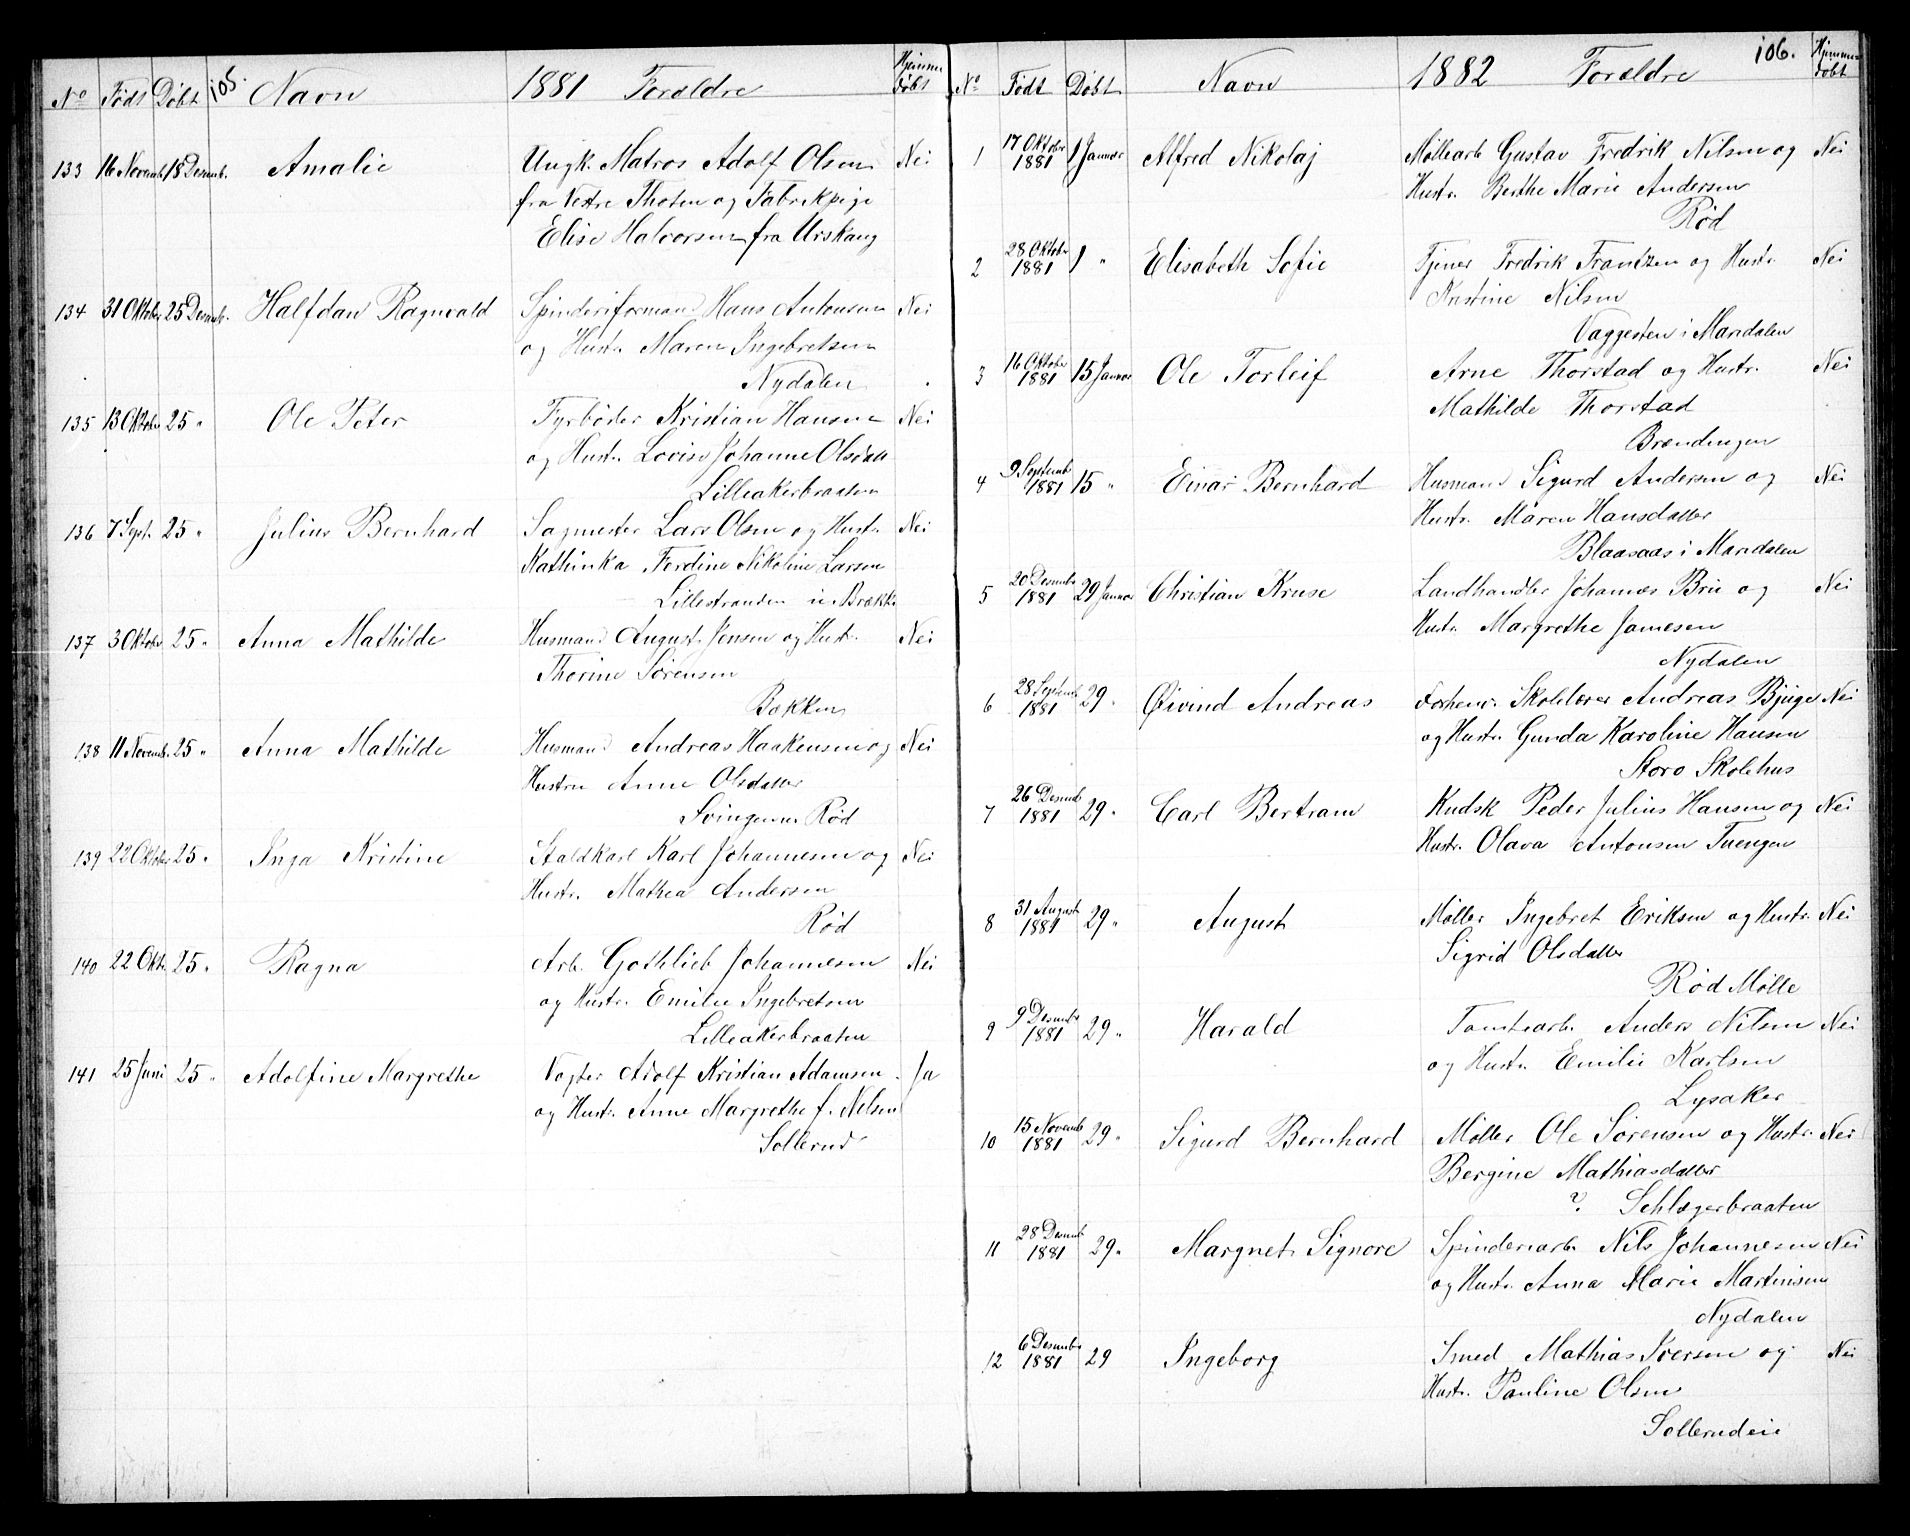 No Født Døbt 105. Navn 1881 Forældre Hjemme døbt
133 16 Novemb. 18 Desemb. Amalie Ungk. Matros Adolf Olsen Nei
fra Vestre Thoten og Fabrikpige
Elise Halvorsen fra Urskoug
134 31 Oktober 25 Desemb. Halfdan Ragnvald Spinderiformand Hans Antonsen Nei
og Hustr. Maren Ingebretsen
Nydalen
135 13 Oktober 25 " Ole Peter Fyrbøder Kristian Hansen Nei
og Hustr. Lovise Johanne Olsdatt
Lilleakerbraaten
136 7 Sept. 25 " Julius Bernhard Sagmester Lars Olsen og Hustr. Nei
Kathinka Ferdine Nikoline Larsen
Lillestranden i Brække
137 3 Oktober 25 " Anna Mathilde Husmand August Jensen og Hustr. Nei
Thorine Sørensen
Bækken
138 11 Novemb. 25 " Anna Mathilde Husmand Andreas Haakensen og Nei
Hustru Anne Olsdatter
Svingen Rød
139 22 Oktober 25 " Inga Kristine Staldkarl Karl Johannesen og Nei
Hustr. Mathea Andersen
Rød
140 22 Okt. 25 " Ragna Arb. Gothlieb Johannesen Nei
og Hustr. Emilie Ingebretsen
Lilleakerbraaten
141 25 Juni 25 " Adolfine Margrethe Vogter Adolf Kristian Adamsen Ja
og Hustr. Anne Margrethe f. Nilsen
Sollerud
No Født Døbt Navn 1882 Forældre 106. Hjemme døbt
1 17 Oktober 1881 1 Januar Alfred Nikolaj Møllearb. Gustav Fredrik Nilsen og Nei
Hustr. Berthe Marie Andersen
Rød
2 28 Oktober 1881 1 " Elisabeth Sofie Tjener Fredrik Frantzen og Hustr. Nei
Kristine Nilsen
Vaggesten i Maridalen
3 16 Oktober 1881 15 Januar Ole Torleif Arne Thorstad og Hustr. Nei
Mathilde Thorstad
Brændingen
4 9 Septemb. 1881 15 " Einar Bernhard Husmand Sigurd Andersen og Nei
Hustr. Maren Hansdatter
Blaasaas i Maridalen
5 20 Desembr 1881 29 Januar Christian Kruse Landhandler Johannes Brie og Nei
Hustr. Margrethe Jamesen
Nydalen
6 28 Septemb. 1881 29 " Øivind Andreas Forhenv. Skolelærer Andreas Bjuge Nei
og Hustr. Gunda Karoline Hansen
Storo Skolehus
7 26 Desemb 1881 29 " Carl Bertram Kudsk Peder Julius Hansen og Nei
Hustr. Olava Antonsen Tuengen
8 31 August 1881 29 " August Møller Ingebret Eriksen og Hustr. Nei
Sigrid Olsdatter
Rød Mølle
9 9 Desembr 1881 29 " Harald Tomtearb. Anders Nilsen Nei
og Hustr. Emilie Karlsen
Lysaker
10 15 Novemb 1881 29 " Sigurd Bernhard Møller Ole Sørensen og Hustr. Nei
Bergine Mathiasdatter
? Schlægerbraaten
11 28 Desemb 1881 29 " Margnet Signore Spinderiarb. Nils Johannesen Nei
og Hustr. Anna Marie Martinsen
Nydalen
12 6 Desembr 1881 29 Ingeborg Smed Mathias Iversen og Nei
Hustr. Pauline Olsen
Sollerudeie